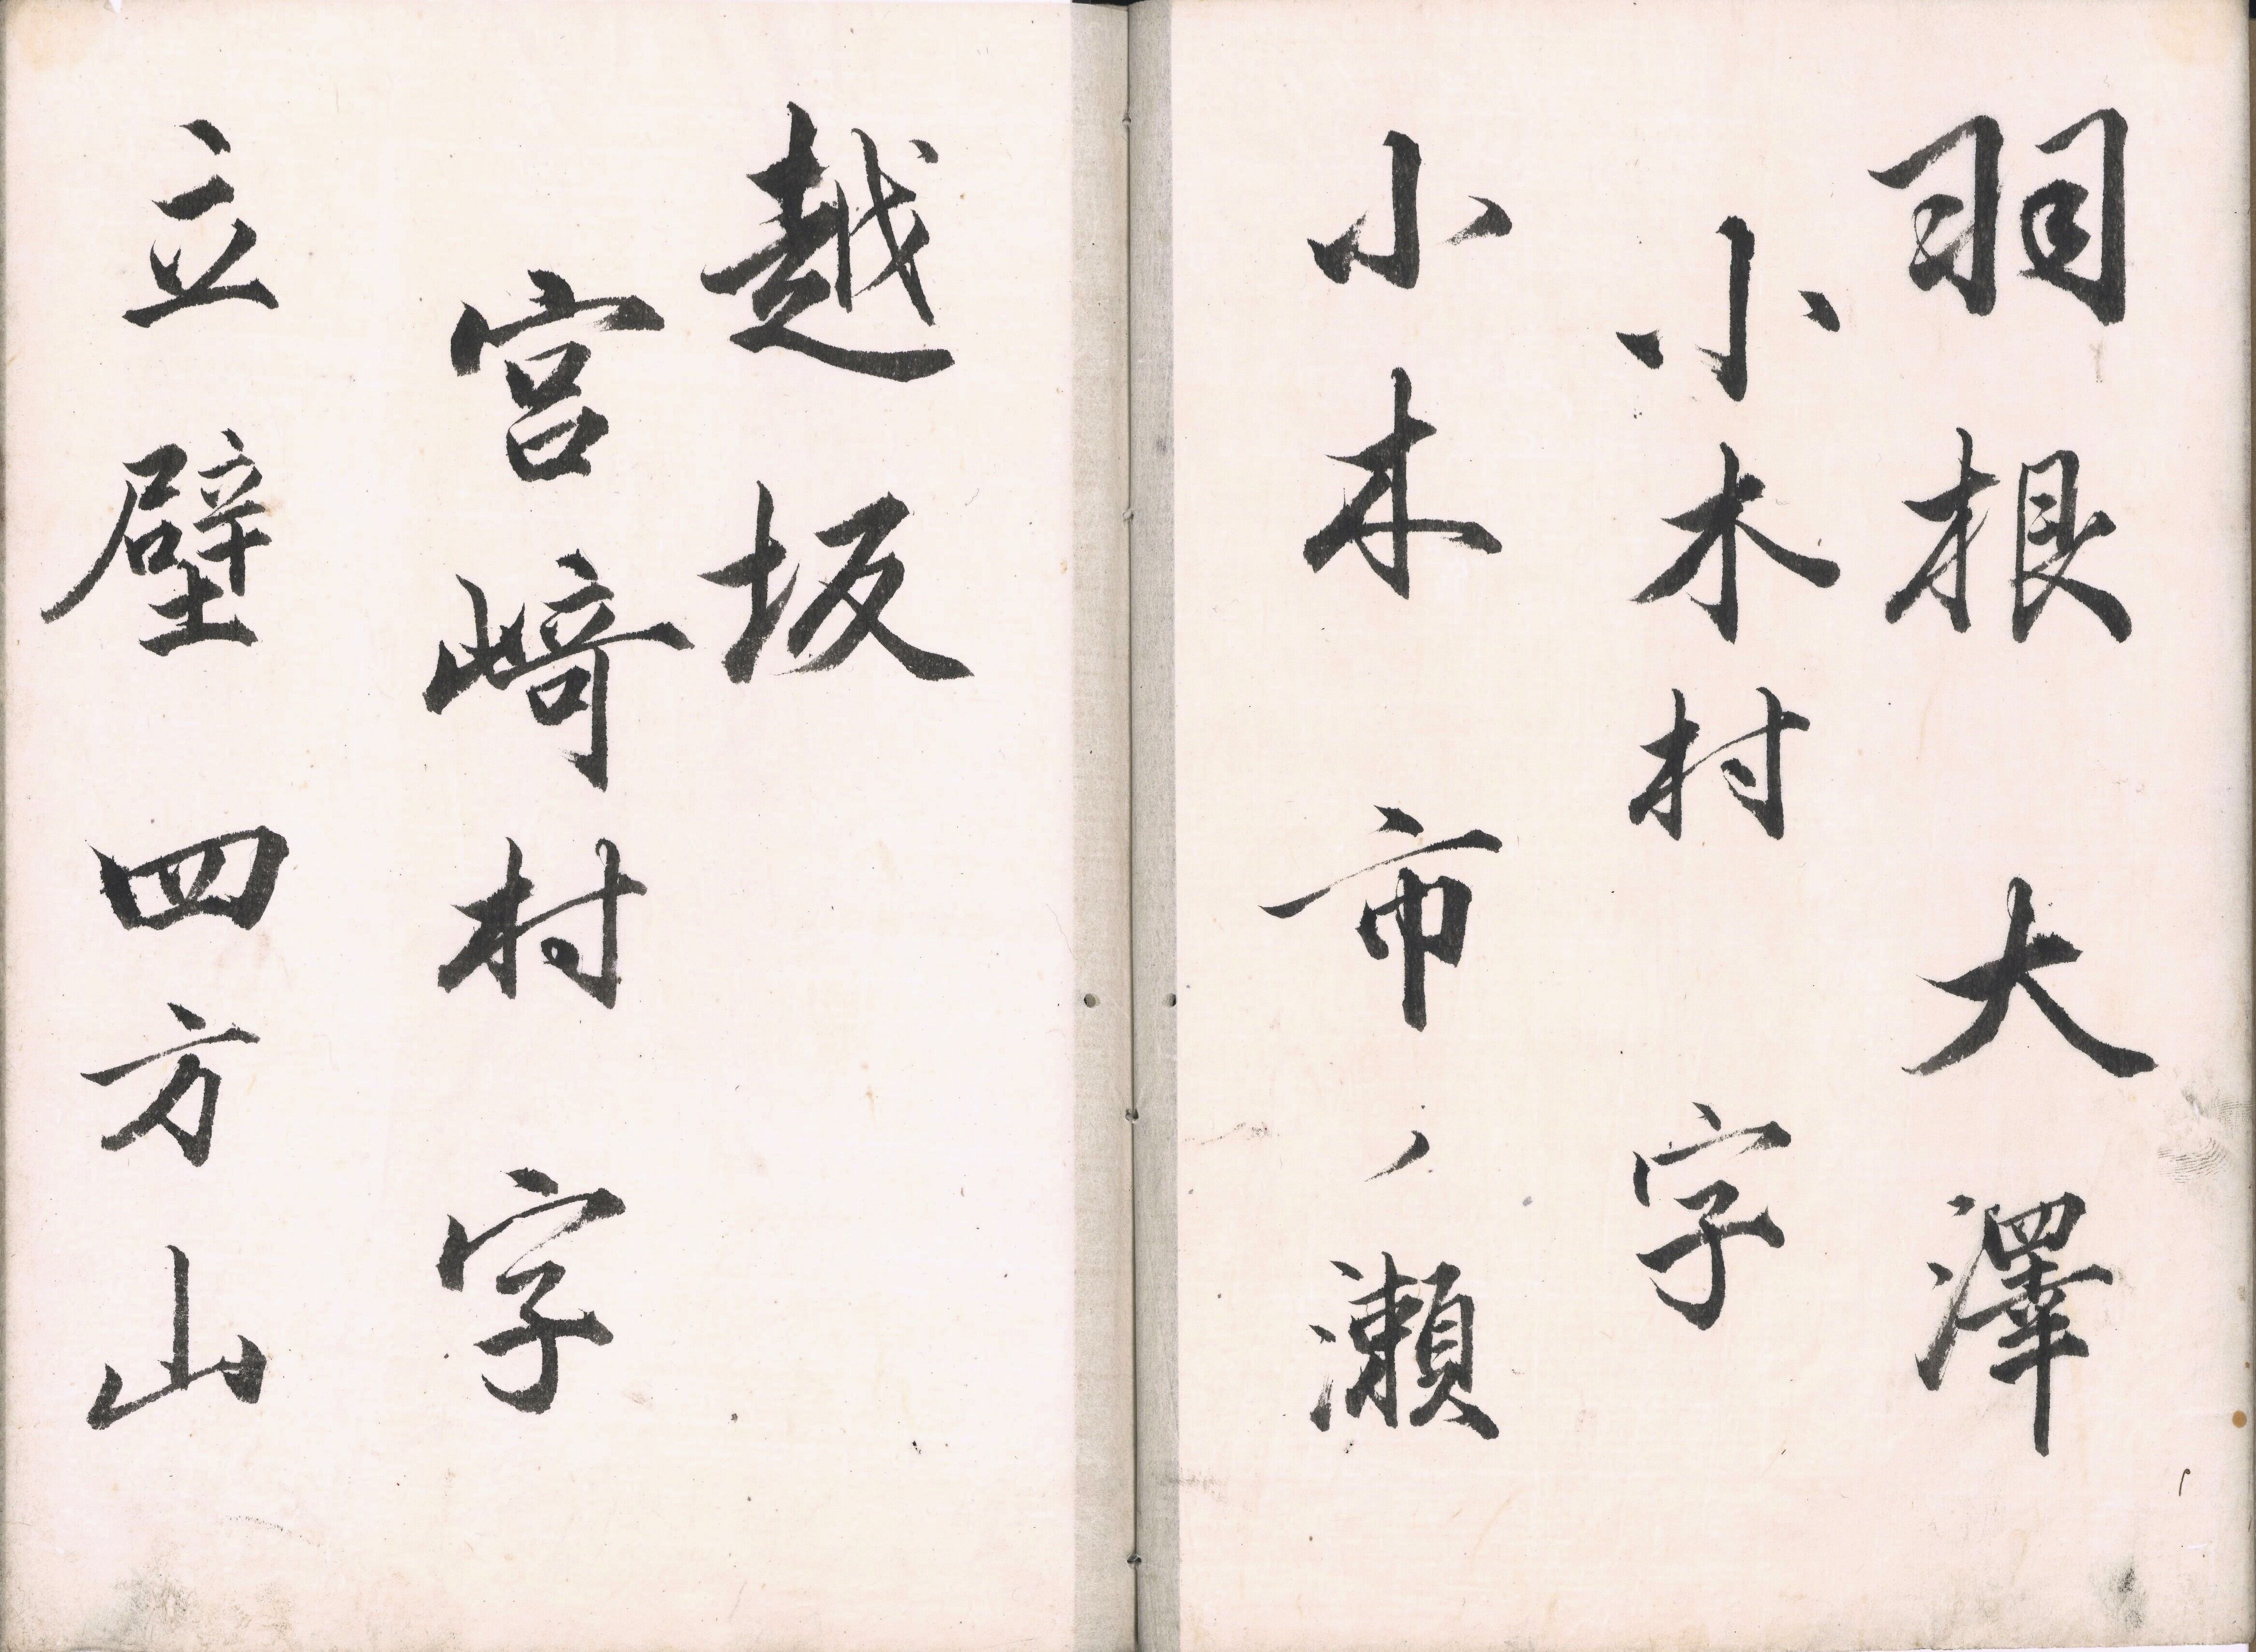 羽根 大澤
小木村 字
小木 市ノ瀬
越坂
宮﨑村 字
立壁 四方山